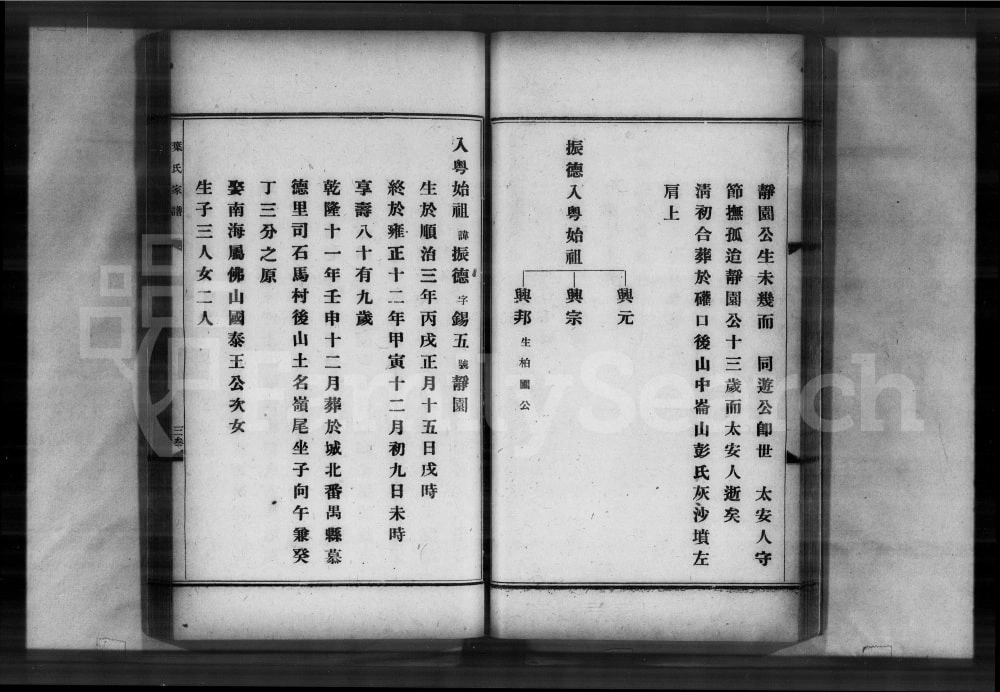 靜園公生未幾而　同遊公卽世　太安人守
節撫孤迨靜園公十三歲而太安人逝矣
淸初合葬於礶口後山中崙山彭氏灰沙墳左
肩上
振德入粵始祖
興元
興宗
興邦 生柏園公
入粵始祖 諱 振德 字 錫五 號 靜園
生於順治三年丙戌正月十五日戌時
終於雍正十二年甲寅十二月初九日未時
享壽八十有九歲
乾隆十一年壬申十二月葬於城北番禺縣慕
德里司石馬村後山土名嶺尾坐子向午兼癸
丁三分之原
娶南海屬佛山國泰王公次女
生子三人女二人
葉氏家譜
三叁
FamilySearch